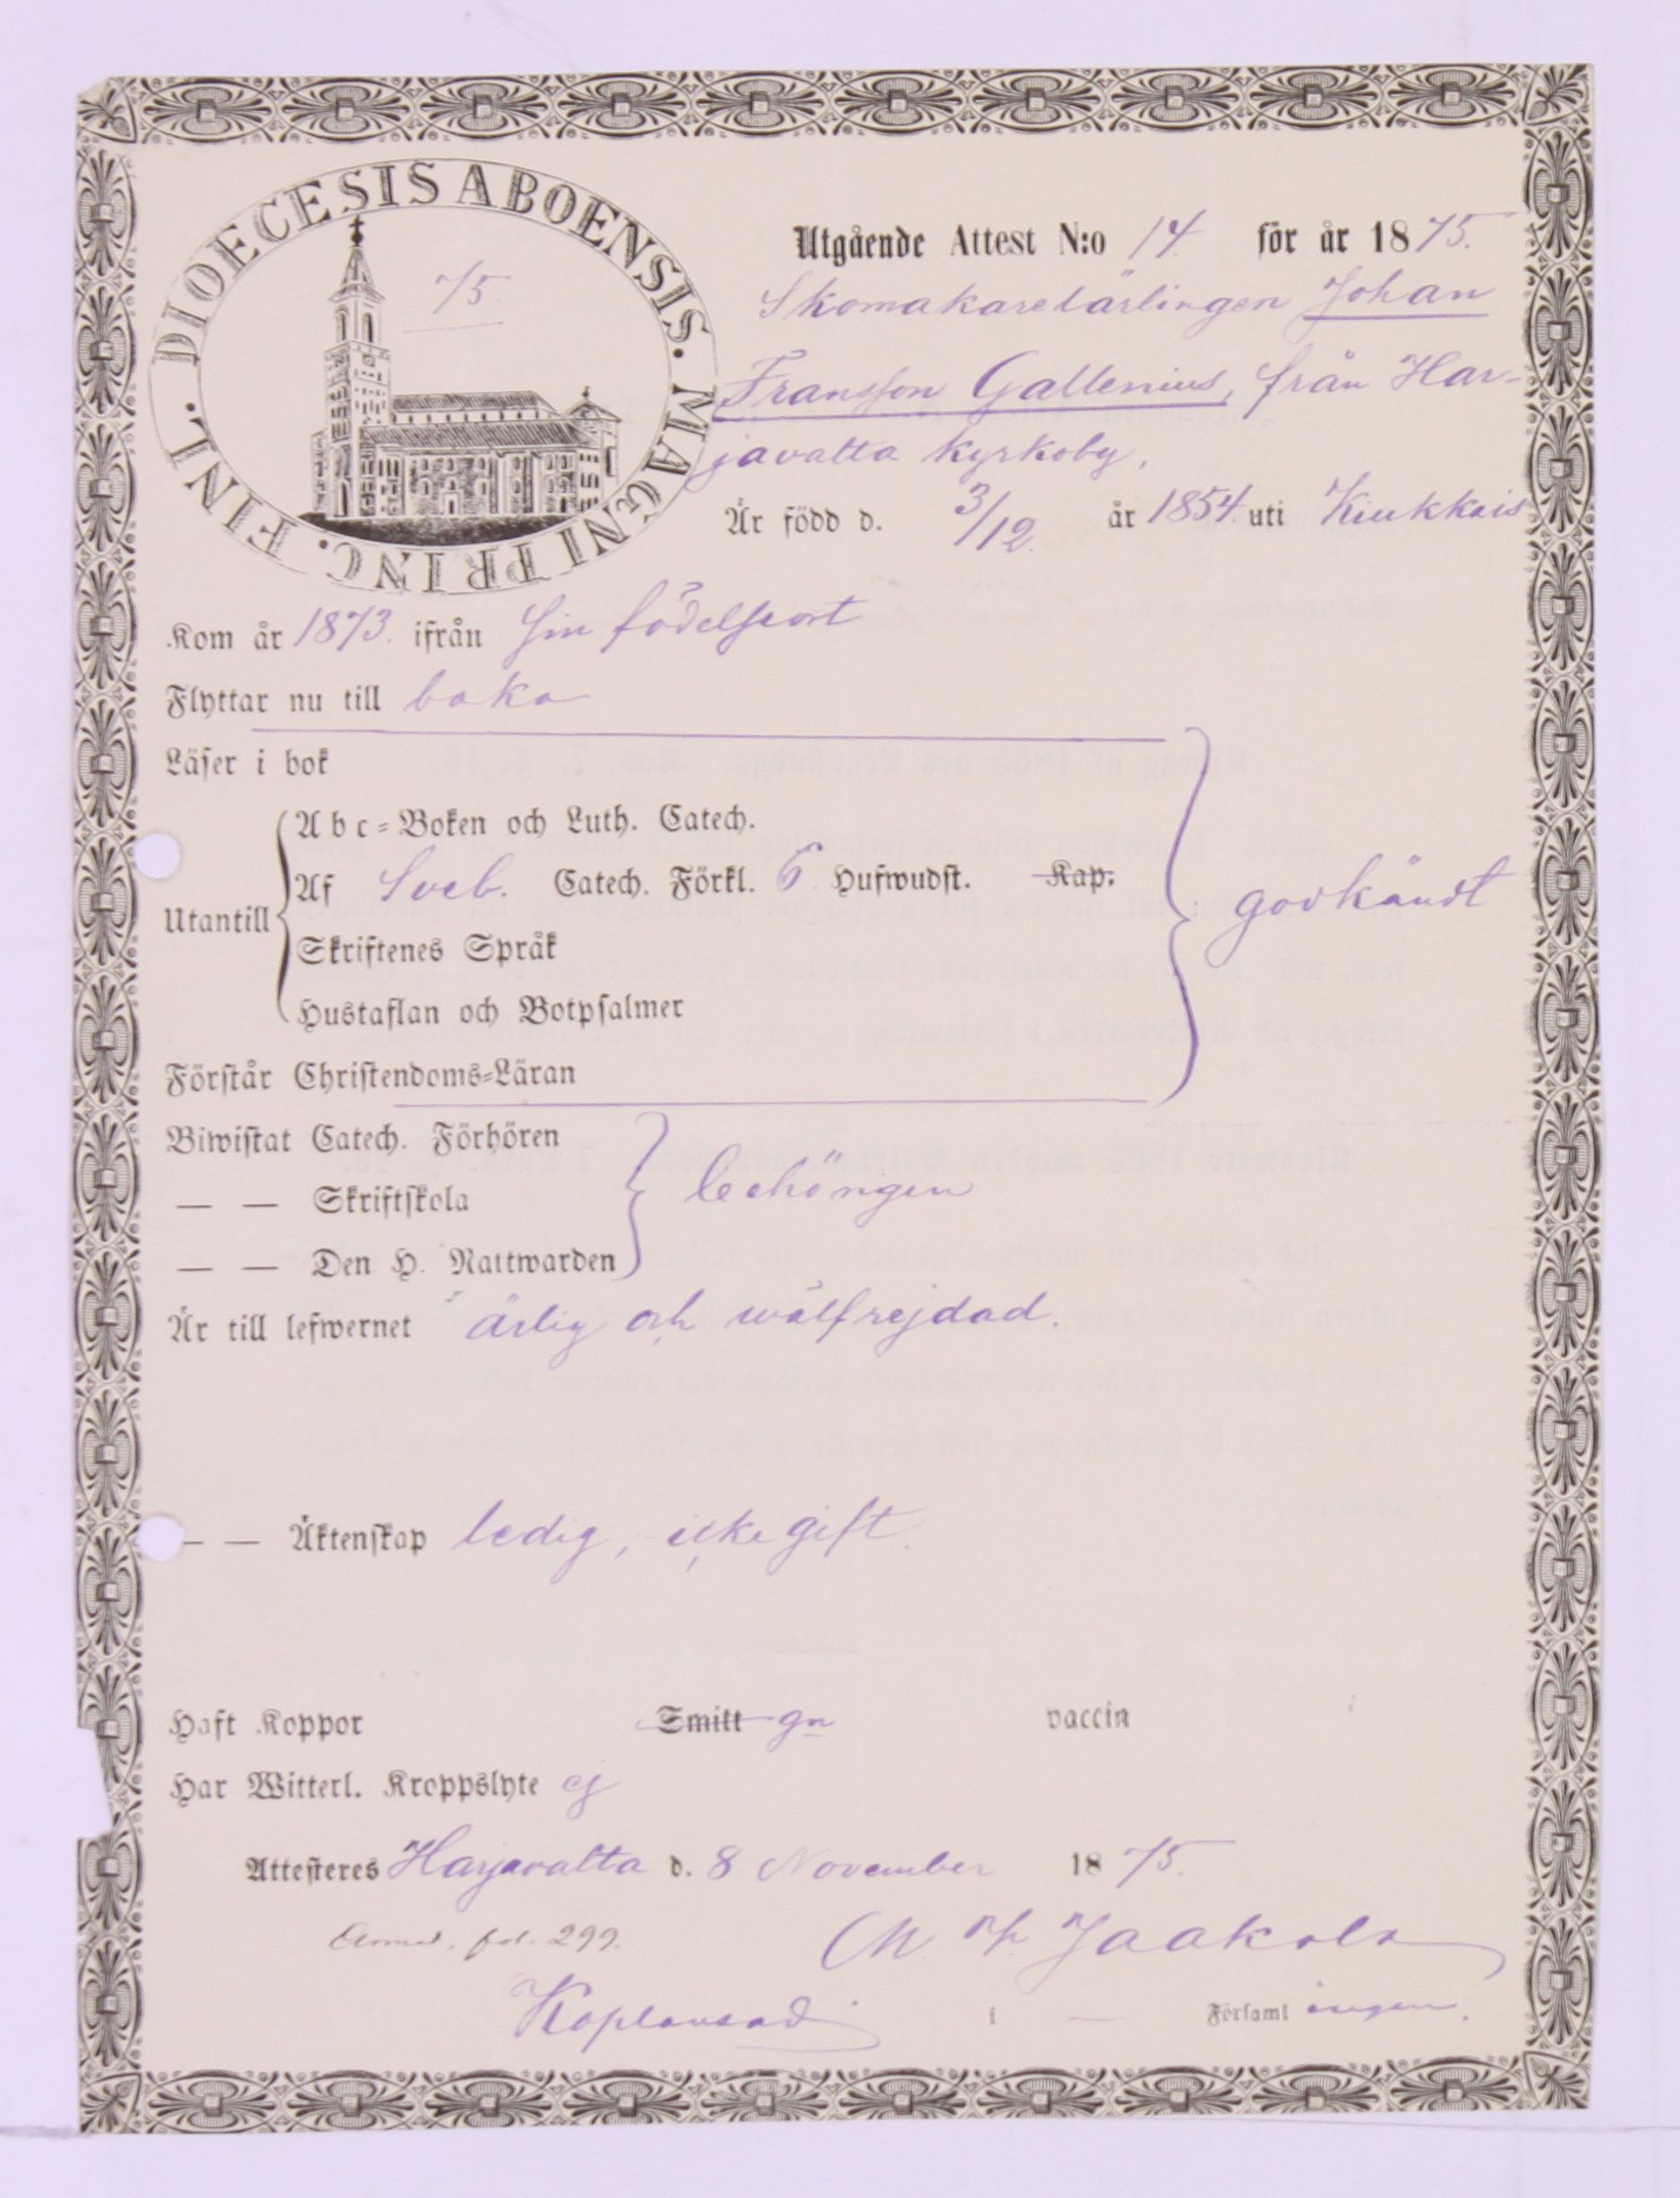 DIOECESIS ABOENSIS. MAGNI PRINC. FINL.
75.
Utgående Attest N:o 14. för år 1875.
Skomakarelärlingen Johan
Fransson Gallenius, från Har-
javalta kyrkoby,
Är född d. 3/12. år 1854. uti Kiukkais
Kom år 1873. ifrån sin födelseort
Flyttar nu till baka
Läser i bok
Utantill
Abc=Boken och Luth. Catech.
Af Sveb. Catech. Förkl. 6 Hufwudst. Kap.
Skriftenes Språk
Hustaflan och Botpsalmer
godkändt
Förstår Christendoms=Läran
Biwistat Catech. Förhören
— — Skriftskola
— — Den H. Nattwarden
behörigen
Är till lefwernet ärlig och wälfrejdad.
— — Äktenskap ledig, icke gift.
Haft Koppor Smitt gn vaccin
Har Witterl. Kroppslyte ej
Attesteres Harjavalta d. 8 November 1875.
fol. 299. Jaakola
i — Församlingen.